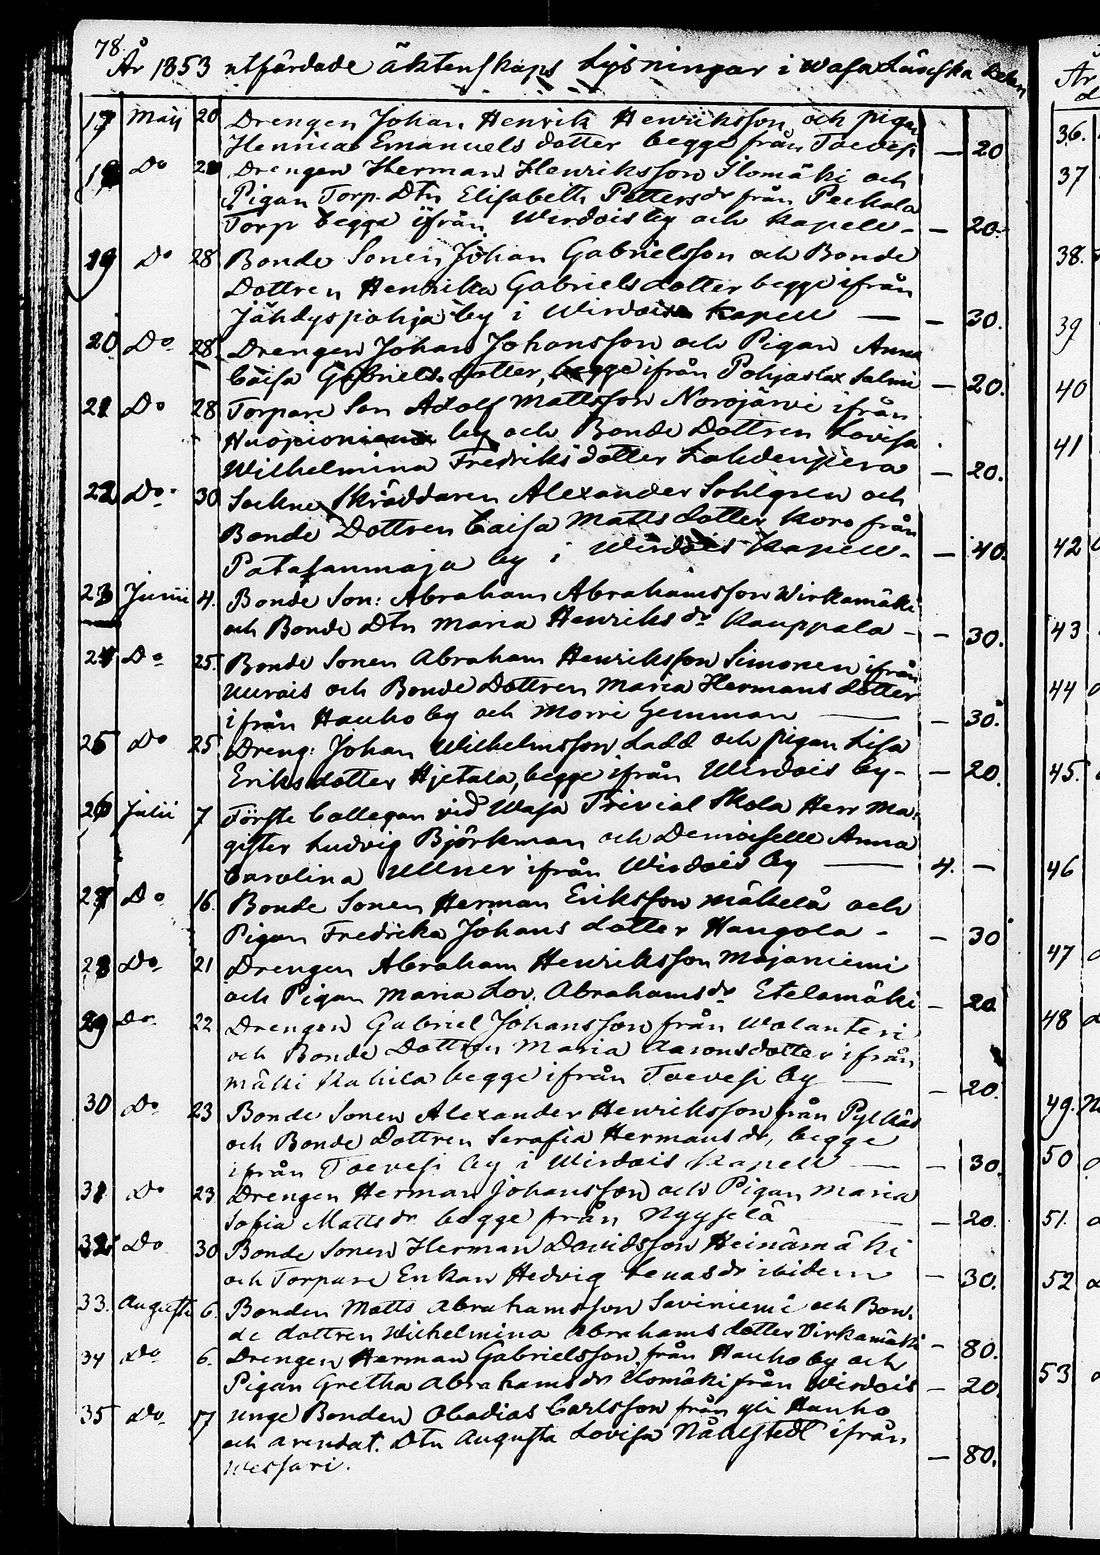 78.
År 1853 utfärdade äktenskaps Lysningar i Wasa Länska
17 Maij 20 Drengen Johan Henrik Henriksson och pigan
Emanuels dotter begge från Toevesi — 20
18 Do Drengen Herman Henriksson Ilomäki och
Pigan Torp. Dtn Elisabeth Petters dr från Peckala
Torp begge ifrån Wirdois by och Kapell — 20.
19 Do 28 Bonde Sonen Johan Gabrielsson och Bonde
Dottren Henrika Gabriels dotter begge ifrån
Jähdyspohja by i Wirdois Kapell — 30.
20 Do 28 Drengen Johan Johansson och Pigan Anna
Caisa Gabriels dotter, begge ifrån Pohjaslax Salmi — 20.
21 Do 28 Torpare Son Adolf Mattsson Norojärvi ifrån
by och Bonde Dottren Lovisa
Wilhelmina Fredriks dotter Lahdenpera — 20.
22 Do 30 Sockne Skräddaren Alexander Sohlgren och
Bonde Dottren Caisa Matts dotter Koro från
by i Wirdois Kapell — 40.
23 Junii 4. Bonde Son: Abraham Abrahamsson Wirkamäki
och Bonde Dtn Maria Henriks dr Kauppala — 30.
24 Do 25. Bonde Sonen Abraham Henriksson Simonen ifrån
och Bonde Dottren Maria Hermans dotter
ifrån Hauho by och Morri Gemman — 30.
25 Do 25 Dreng: Johan Wilhelmsson Ladd och pigan Lisa
Eriks dotter Hjetala, begge ifrån Wirdois by — 20.
26 Julii 7 Förste Collegan vid Wasa Trivial Skola Herr Ma-
gister Ludvig Björkman och Demoiselle Anna
Carolina Ullner ifrån Wirdois by — 4. —
27 Do 16. Bonde Sonen Herman Eriksson Mäkelä och
Pigan Fredrika Johans dotter Hangola — 30
28 Do 21 Drengen Abraham Henriksson Majaniemi
och Pigan Maria Lov. Abrahams dr Etelamäki — 20
29 Do 22 Drengen Gabriel Johansson från Walanteri
och Bonde Dottren Maria Aarons dotter ifrån
Mäki Kahila begge ifrån Toevesi by — 20.
30 Do 23 Bonde Sonen Alexander Henriksson från Pylkäs
och Bonde Dottren Serafia Hermans dr, begge
ifrån Toevesi by i Wirdois Kapell — 30.
31 Do 23 Drengen Herman Johansson och Pigan Maria
Sofia Matts dr begge från Nyyssölä — 20.
32 Do 30 Bonde Sonen Herman Davidsson Heinämäki
och Torpare Enkan Hedvig Lenas dr ibidem — 30.
33. Augusti 6. Bonden Matts Abrahamsson Saviniemi och Bon-
de dottren Wilhelmina Abrahams dotter Virkamäki — 80.
34 Do 6. Drengen Herman Gabrielsson från Hauho by och
Pigan Gretha Abrahams dr Ilomäki från Wirdois — 20.
35 Do 17 Unge Bonden Obadias Carlsson från yli Hauho
och arendat. Dtn Augusta Lovisa Nählstedt ifrån
Wessari. — 80.
År
36.
37
38.
39
40
41
42
43
44
45.
46
47
48
49.
50
51.
52
53